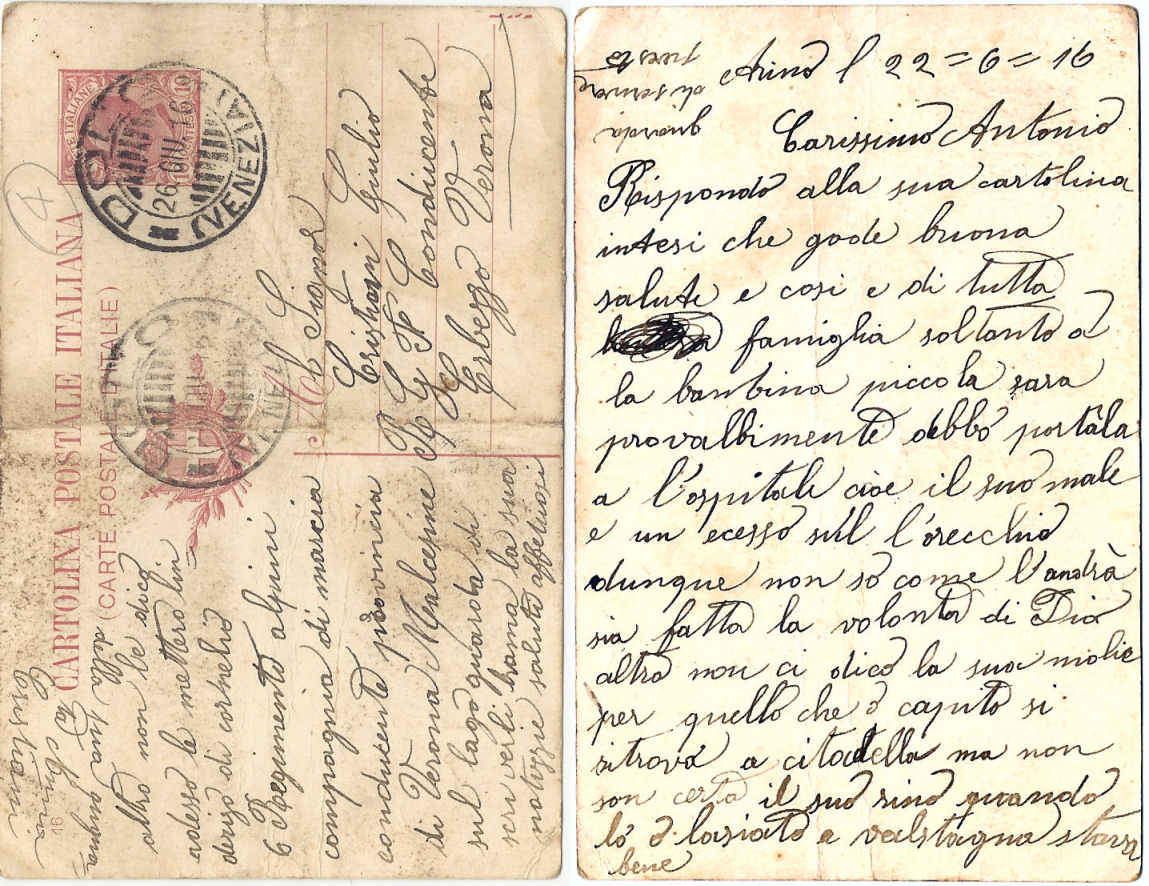 CARTOLINA POSTALE ITALIANA
(CARTE POSTALE D'ITALIE)
10
DOLO
26 GIU 16
(VENEZIA)
Al Signor
Cristiani Giulio
R G F Condicente
Erbezzo Verona
altro non le dico
adesso le mettero lin
derizo di cornelio
6 Regimento alpini
compagnia di marcia
conducente provincia
di Verona Malcesine
sul lago guarda di
scriverli hanno la sua
notizzie saluti affetuosi
della sua
Cristiani
16
Arino l 22=6=16
Carissimo Antonio
Rispondo alla sua cartolina
intesi che gode buona
salute e cosi e di tutta
famiglia soltanto a
la banbina piccola sara
provalbimente debbo portàla
a l'ospitale cioe il suo male
e un ecesso sul l'orecchio
dunque non so come l'andrà
sia fatta la volontà di Dio
altro non ci dico la sua molie
per quello che ò capito si
sitrova a citadella ma non
son certa il suo sino quando
lò ò lasiato a valstagna stava
bene